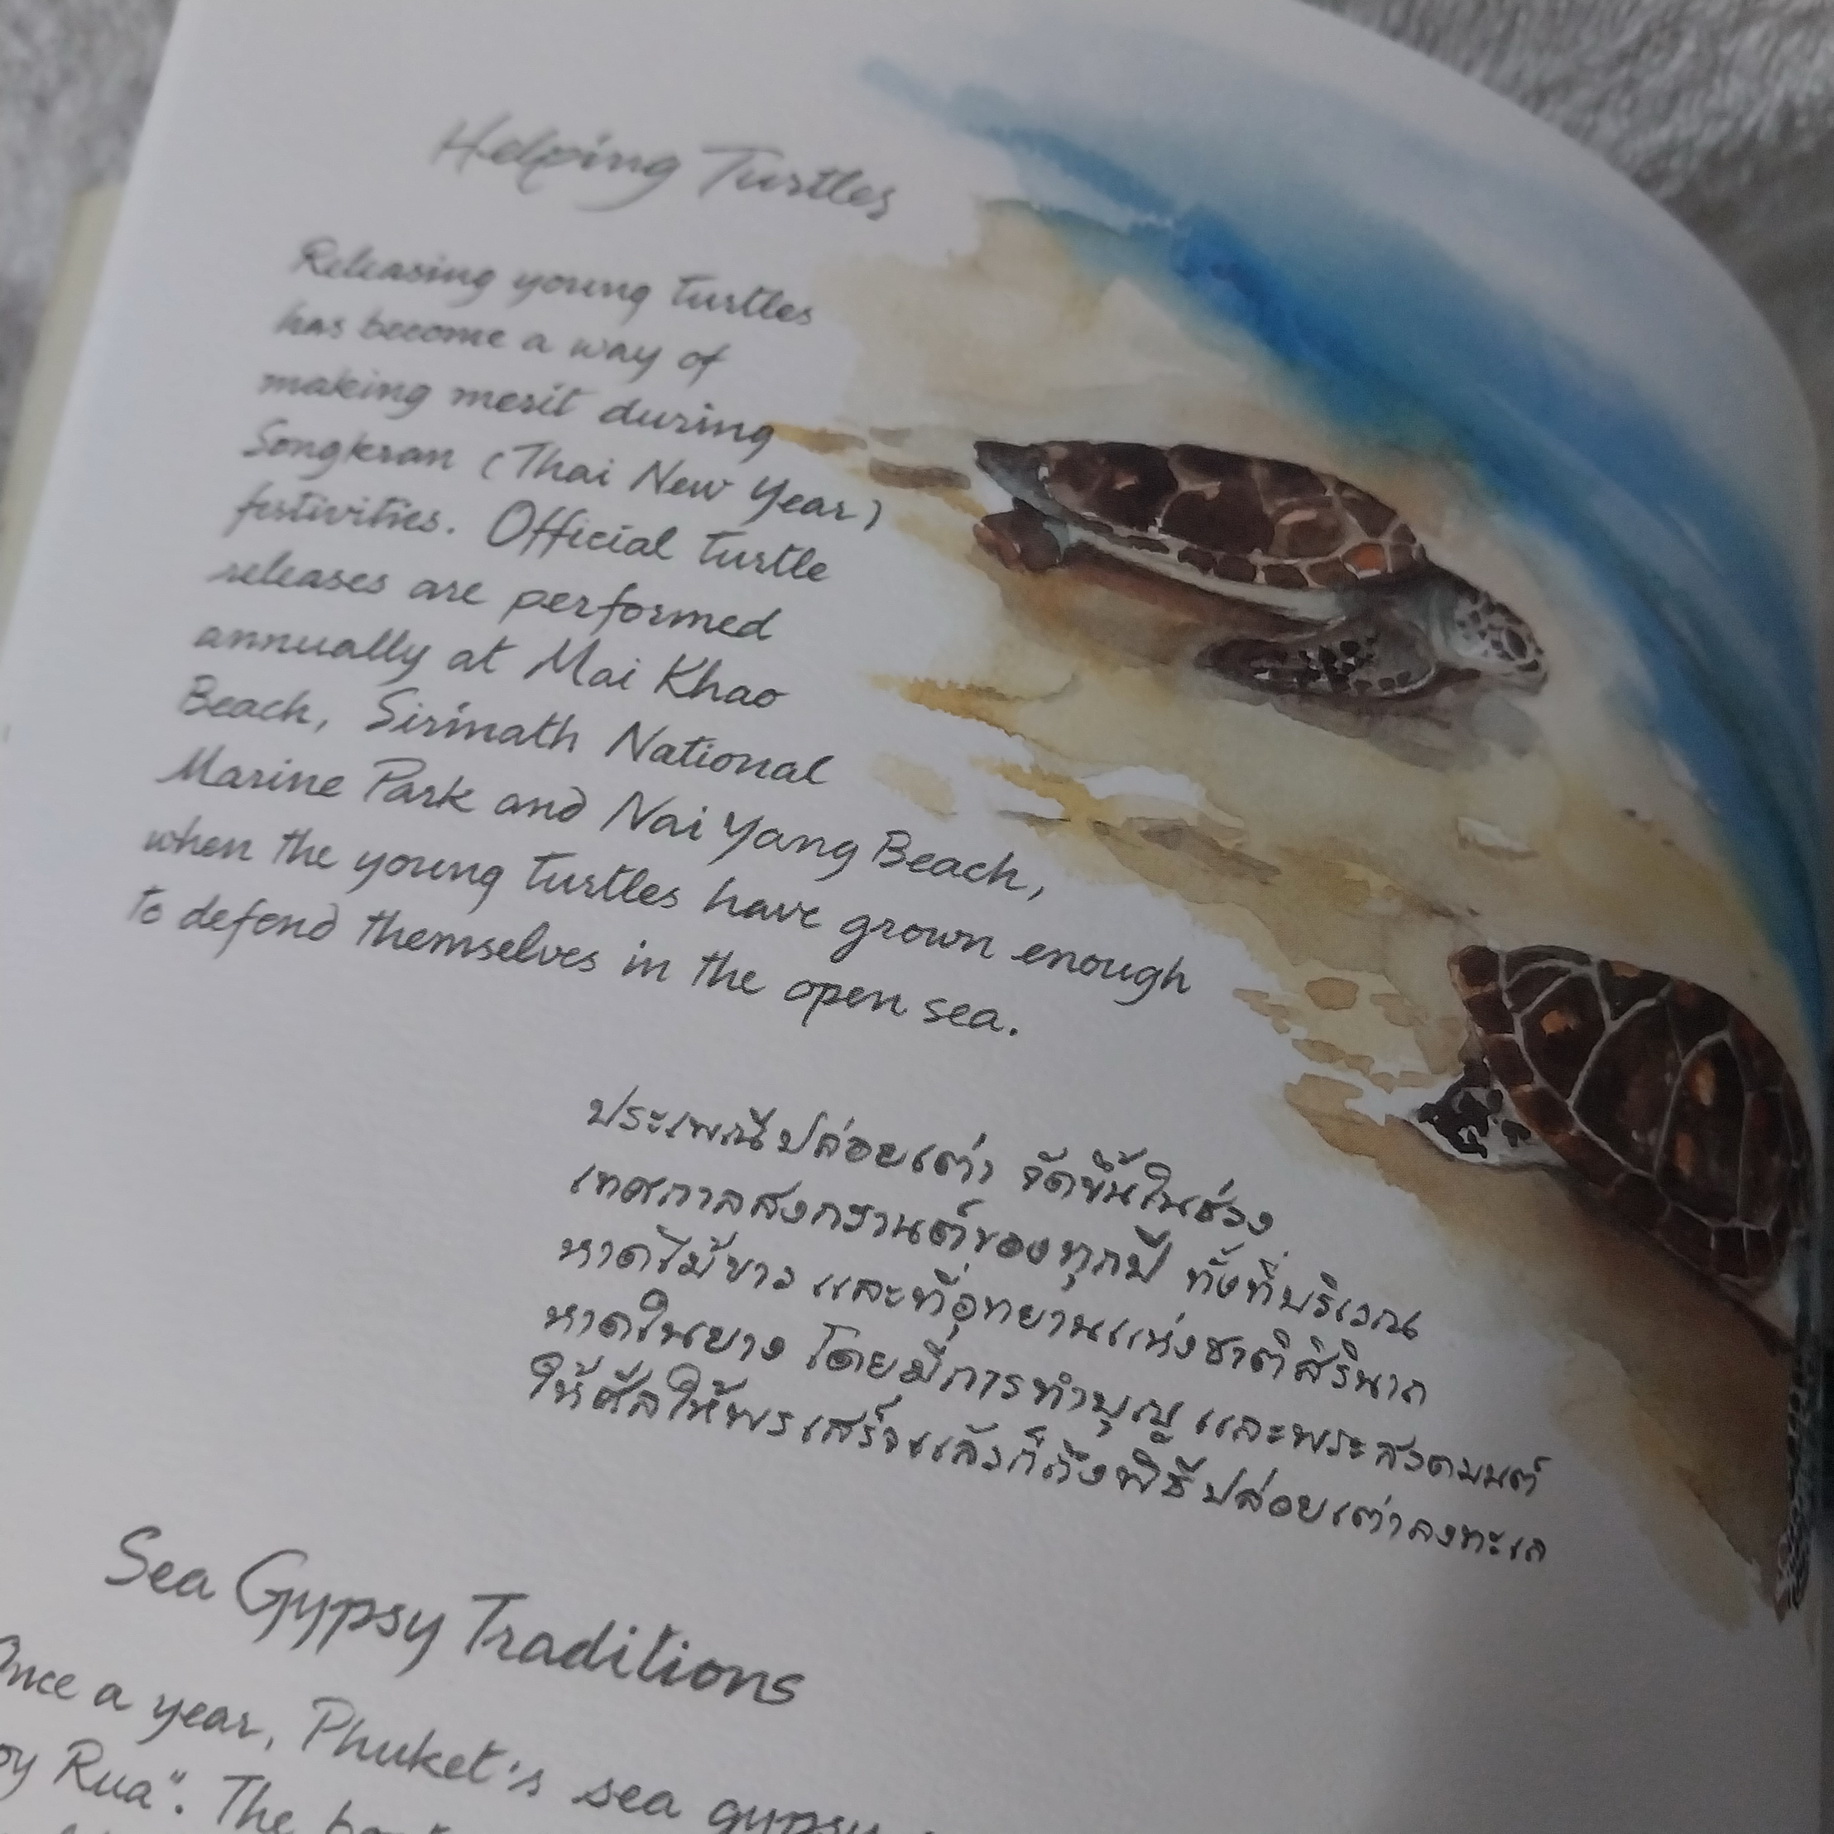 Helping Turtles
Releasing young turtles
has become a way of
making merit during
Songkran (Thai New Year)
festivities. Official turtle
releases are performed
annually at Mai Khao
Beach, Sirinath National
Marine Park and Nai Yang Beach,
when the young turtles have grown enough
to defend themselves in the open sea.
ประเพณีปล่อยเต่า จัดขึ้นในช่วง
เทศกาลสงกรานต์ของทุกปี ทั้งที่บริเวณ
หาดไม้ขาว และที่อุทยานแห่งชาติสิรินาถ
หาดในยาง โดยมีการทำบุญ และพระสวดมนต์
ให้ศีลให้พรเสร็จแล้วก็ถึงพิธีปล่อยเต่าลงทะเล
Sea Gypsy Traditions
Once a year, Phuket's sea gypsy
oy Rua". The